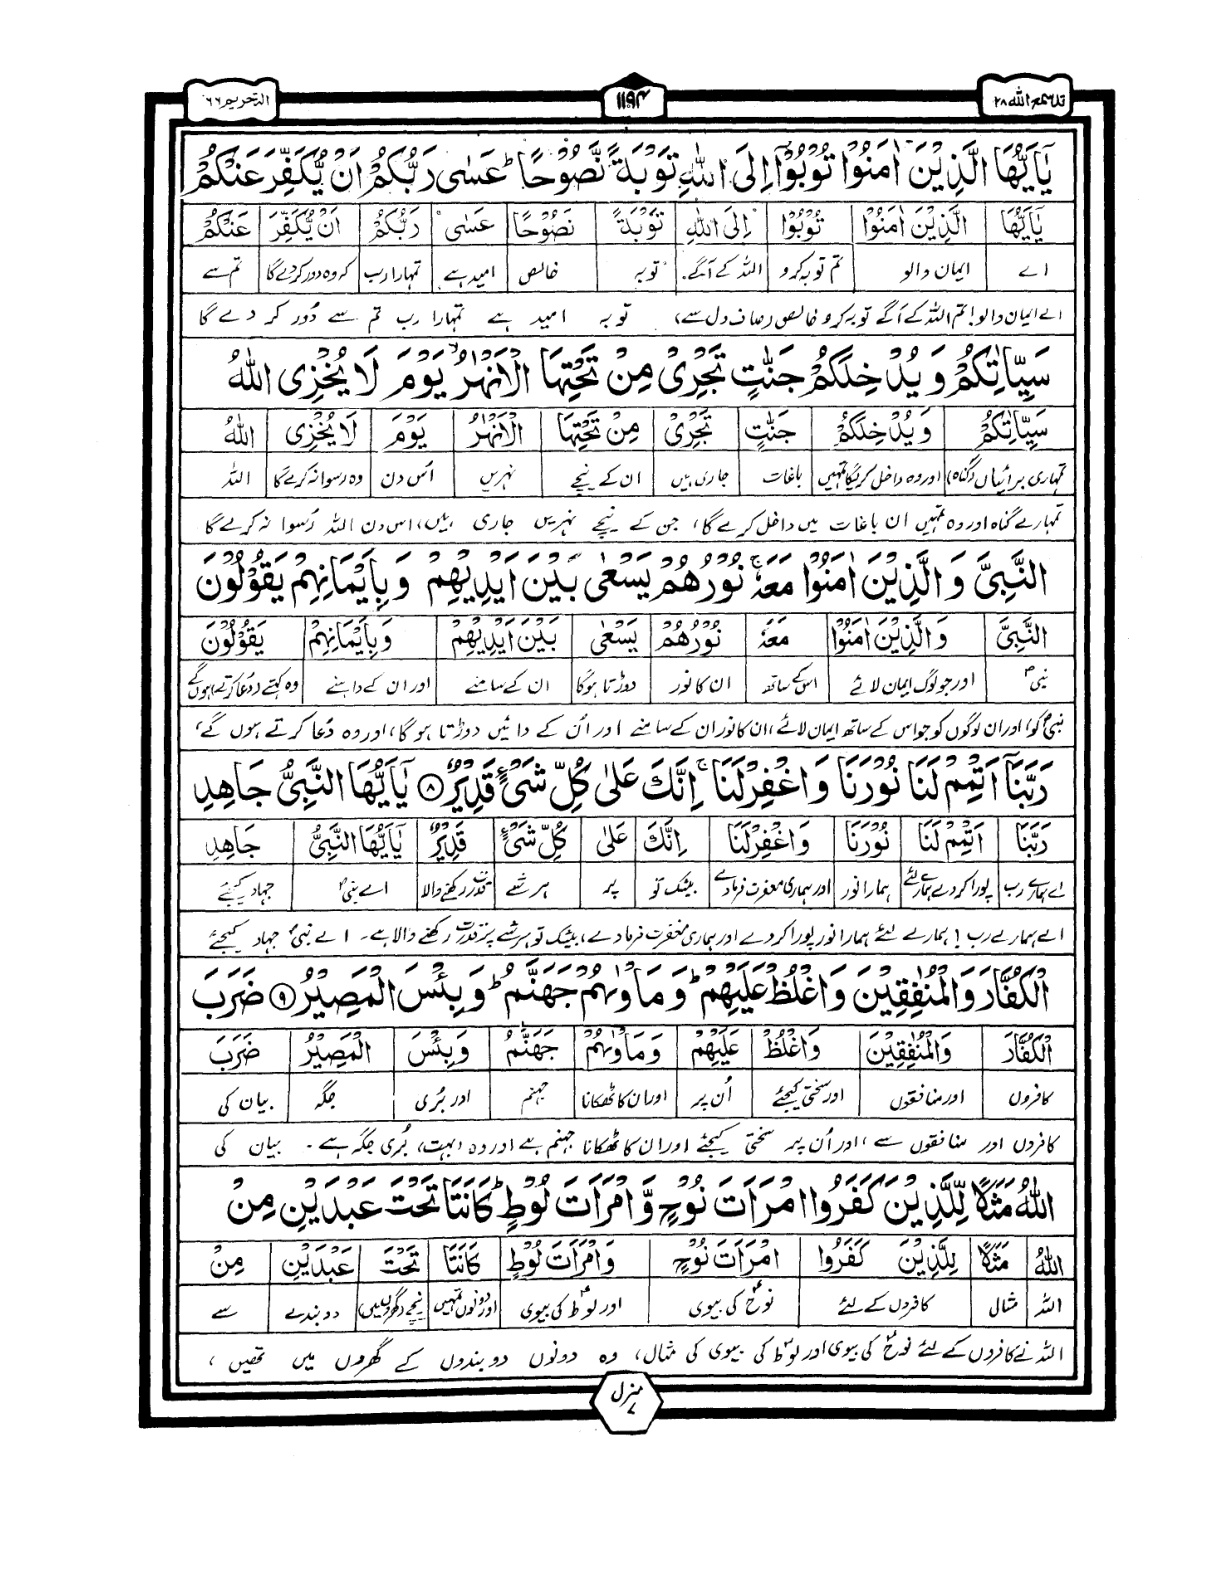 قد سمع الله ۲۸
۱۱۹۴
التحریم ۶۶
يٰۤاَيُّهَا الَّذِيْنَ اٰمَنُوْا تُوْبُوْۤا اِلَى اللّٰهِ تَوْبَةً نَّصُوْحًا ؕ عَسٰى رَبُّكُمْ اَنْ يُّكَفِّرَ عَنْكُمْ
يٰۤاَيُّهَا الَّذِيْنَ اٰمَنُوْا تُوْبُوْا اِلَى اللّٰهِ تَوْبَةً نَصُوْحًا عَسٰى رَبُّكُمْ اَنْ يُّكَفِّرَ عَنْكُمْ
اے ایمان والو تم توبہ کرو اللہ کے آگے توبہ خالص امید ہے تمہارا رب کہ وہ دور کردے گا تم سے
اے ایمان والو! تم اللہ کے آگے توبہ کرو خالص (صاف دل سے) توبہ امید ہے تمہارا رب تم سے دُور کر دے گا
سَيِّاٰتِكُمْ وَ يُدْخِلَكُمْ جَنّٰتٍ تَجْرِيْ مِنْ تَحْتِهَا الْاَنْهٰرُ ۙ يَوْمَ لَا يُخْزِى اللّٰهُ
سَيِّاٰتِكُمْ وَيُدْخِلَكُمْ جَنّٰتٍ تَجْرِيْ مِنْ تَحْتِهَا الْاَنْهٰرُ يَوْمَ لَا يُخْزِى اللّٰهُ
تمہاری برائیاں (گناہ) اور وہ داخل کریگا تمہیں باغات جاری ہیں ان کے نیچے نہریں اُس دن وہ رسوا نہ کرے گا اللہ
تمہارے گناہ اور وہ تمہیں ان باغات میں داخل کرے گا، جن کے نیچے نہریں جاری ہیں، اس دن اللہ رُسوا نہ کرے گا
النَّبِيَّ وَ الَّذِيْنَ اٰمَنُوْا مَعَهٗ ۚ نُوْرُهُمْ يَسْعٰى بَيْنَ اَيْدِيْهِمْ وَ بِاَيْمَانِهِمْ يَقُوْلُوْنَ
النَّبِيَّ وَالَّذِيْنَ اٰمَنُوْا مَعَهٗ نُوْرُهُمْ يَسْعٰى بَيْنَ اَيْدِيْهِمْ وَبِاَيْمَانِهِمْ يَقُوْلُوْنَ
نبیؐ اور جو لوگ ایمان لائے اس کے ساتھ ان کا نور دوڑتا ہوگا ان کے سامنے اور ان کے داہنے وہ کہتے (دُعا کرتے) ہوں گے
نبیؐ کو، اور ان لوگوں کو جو اس کے ساتھ ایمان لائے، ان کا نور ان کے سامنے اور اُن کے دائیں دوڑتا ہو گا، اور وہ دُعا کرتے ہوں گے،
رَبَّنَاۤ اَتْمِمْ لَنَا نُوْرَنَا وَ اغْفِرْ لَنَا ۚ اِنَّكَ عَلٰى كُلِّ شَيْءٍ قَدِيْرٌ ۸ يٰۤاَيُّهَا النَّبِيُّ جَاهِدِ
رَبَّنَا اَتْمِمْ لَنَا نُوْرَنَا وَاغْفِرْ لَنَا اِنَّكَ عَلٰى كُلِّ شَيْءٍ قَدِيْرٌ يٰۤاَيُّهَا النَّبِيُّ جَاهِدِ
اے ہمارے رب پورا کر دے ہمارے لئے ہمارا نور اور ہماری مغفرت فرما دے بیشک تو پر ہر شے قدرت رکھنے والا اے نبیؐ جہاد کیجئے
اے ہمارے رب! ہمارے لئے ہمارا نور پورا کر دے اور ہماری مغفرت فرما دے، بیشک تو ہر شے پر قدرت رکھنے والا ہے۔ اے نبیؐ جہاد کیجئے
الْكُفَّارَ وَالْمُنٰفِقِيْنَ وَاغْلُظْ عَلَيْهِمْ ؕ وَ مَاْوٰىهُمْ جَهَنَّمُ ؕ وَ بِئْسَ الْمَصِيْرُ ۹ ضَرَبَ
الْكُفَّارَ وَالْمُنٰفِقِيْنَ وَاغْلُظْ عَلَيْهِمْ وَمَاْوٰىهُمْ جَهَنَّمُ وَبِئْسَ الْمَصِيْرُ ضَرَبَ
کافروں اور منافقوں اور سختی کیجئے اُن پر اور ان کا ٹھکانا جہنم اور بُری جگہ بیان کی
کافروں اور منافقوں سے، اور اُن پر سختی کیجئے اور ان کا ٹھکانا جہنم ہے اور وہ (بہت) بُری جگہ ہے۔ بیان کی
اللّٰهُ مَثَلًا لِّلَّذِيْنَ كَفَرُوا امْرَاَتَ نُوْحٍ وَّ امْرَاَتَ لُوْطٍ ؕ كَانَتَا تَحْتَ عَبْدَيْنِ مِنْ
اللّٰهُ مَثَلًا لِلَّذِيْنَ كَفَرُوا امْرَاَتَ نُوْحٍ وَامْرَاَتَ لُوْطٍ كَانَتَا تَحْتَ عَبْدَيْنِ مِنْ
اللہ مثالی کافروں کے لئے نوحؑ کی بیوی اور لوطؑ کی بیوی اور دونوں تھیں نیچے (گھر میں) دو بندے سے
اللہ نے کافروں کے لئے نوحؑ کی بیوی اور لوطؑ کی بیوی کی مثال، وہ دونوں دو بندوں کے گھروں میں تھیں،
منزل ۷